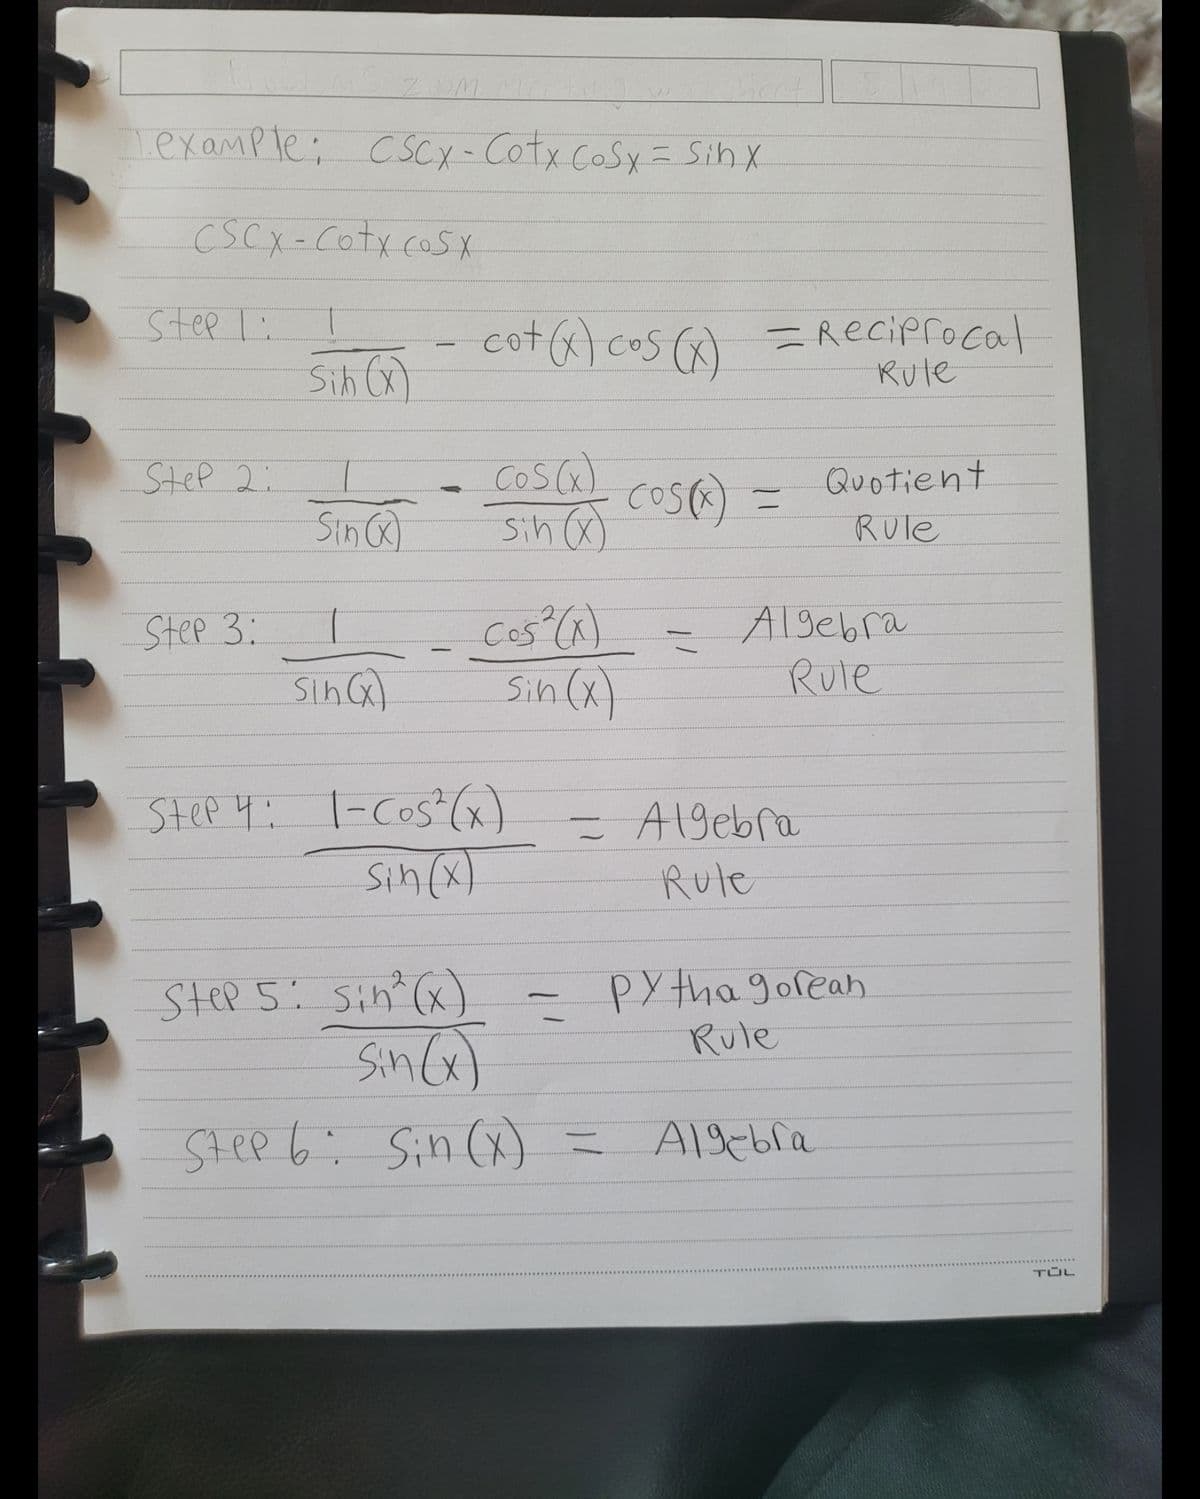 example; cscx - cotx cosx = sinx
cscx - cotx cosx
Step 1: 1/sin(x) - cot(x) cos(x) = Reciprocal
Rule
Step 2: 1/sin(x) - cos(x)/sin(x) cos(x) = Quotient
Rule
Step 3: 1/sin(x) - cos²(x)/sin(x) = Algebra
Rule
Step 4: 1-cos²(x)/sin(x) = Algebra
Rule
Step 5: sin²(x)/sin(x) = pythagorean
Rule
Step 6: sin(x) = Algebra
TUL